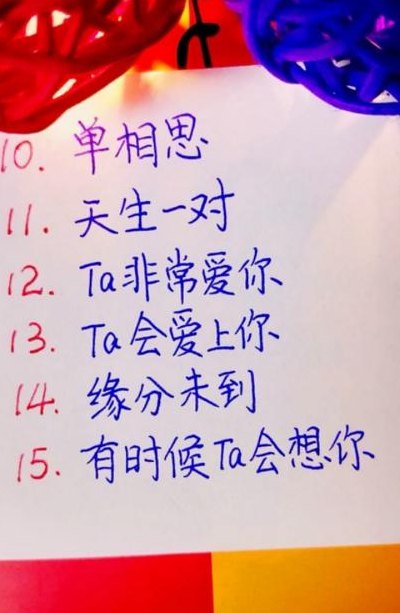 10. 单相思
11. 天生一对
12. Ta非常爱你
13. Ta会爱上你
14. 缘分未到
15. 有时候Ta会想你